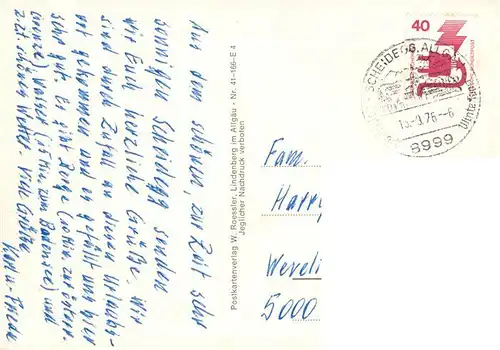 Aus dem schönen, zur Zeit sehr
sonnigen Scheidegg senden
wir Euch herzliche Grüße. Wir
sind durch Zufall an diesen Urlaubs-
ort gekommen und es gefällt uns hier
sehr gut. Es gibt Berge
Wasser zum Bodensee) und
z.Zt. Wetter - viele Grüße
Karl u. Frieda
Postkartenverlag W. Roessler, Lindenberg im Allgäu - Nr. 41-166-E 4
Jeglicher Nachdruck verboten
40
SCHEIDEGG, ALLG
8999
Fam.
Harry
Weveli
5000